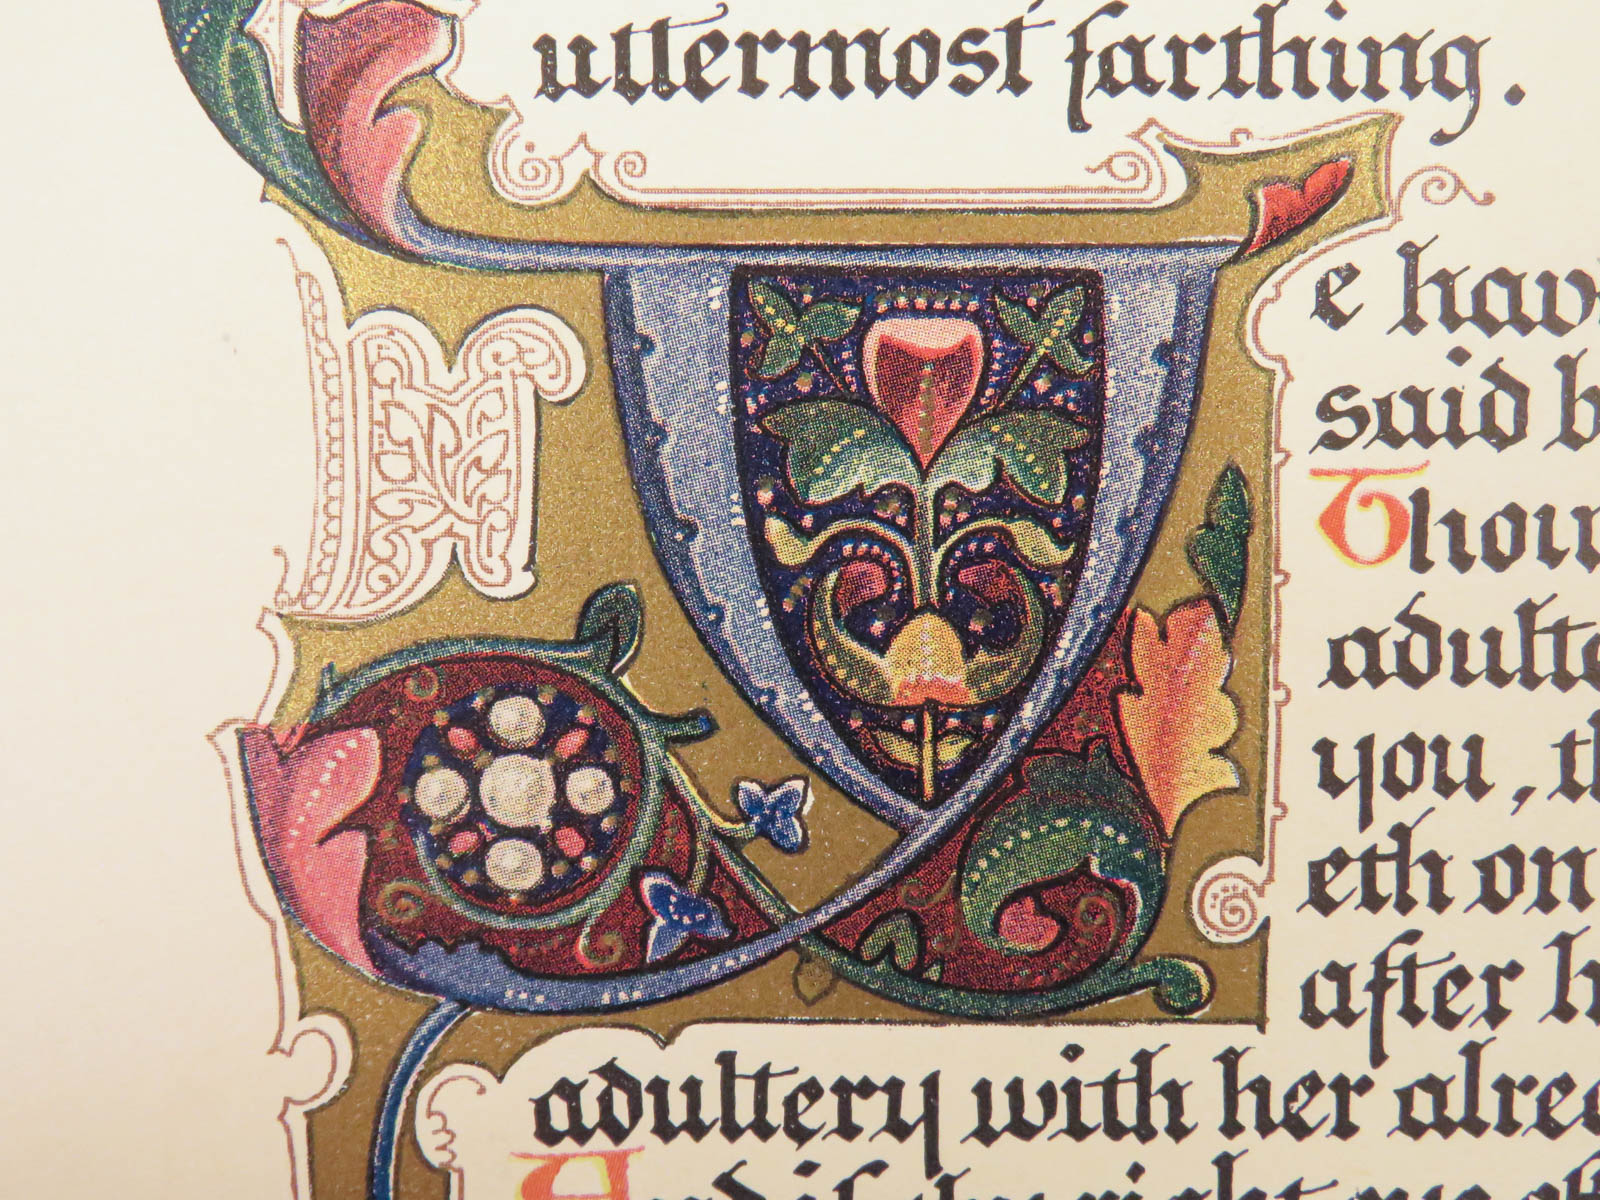 uttermost farthing.
Ye have
said b
Thou
adulte
you, th
eth on
after h
adultery with her alrea
And if thy right